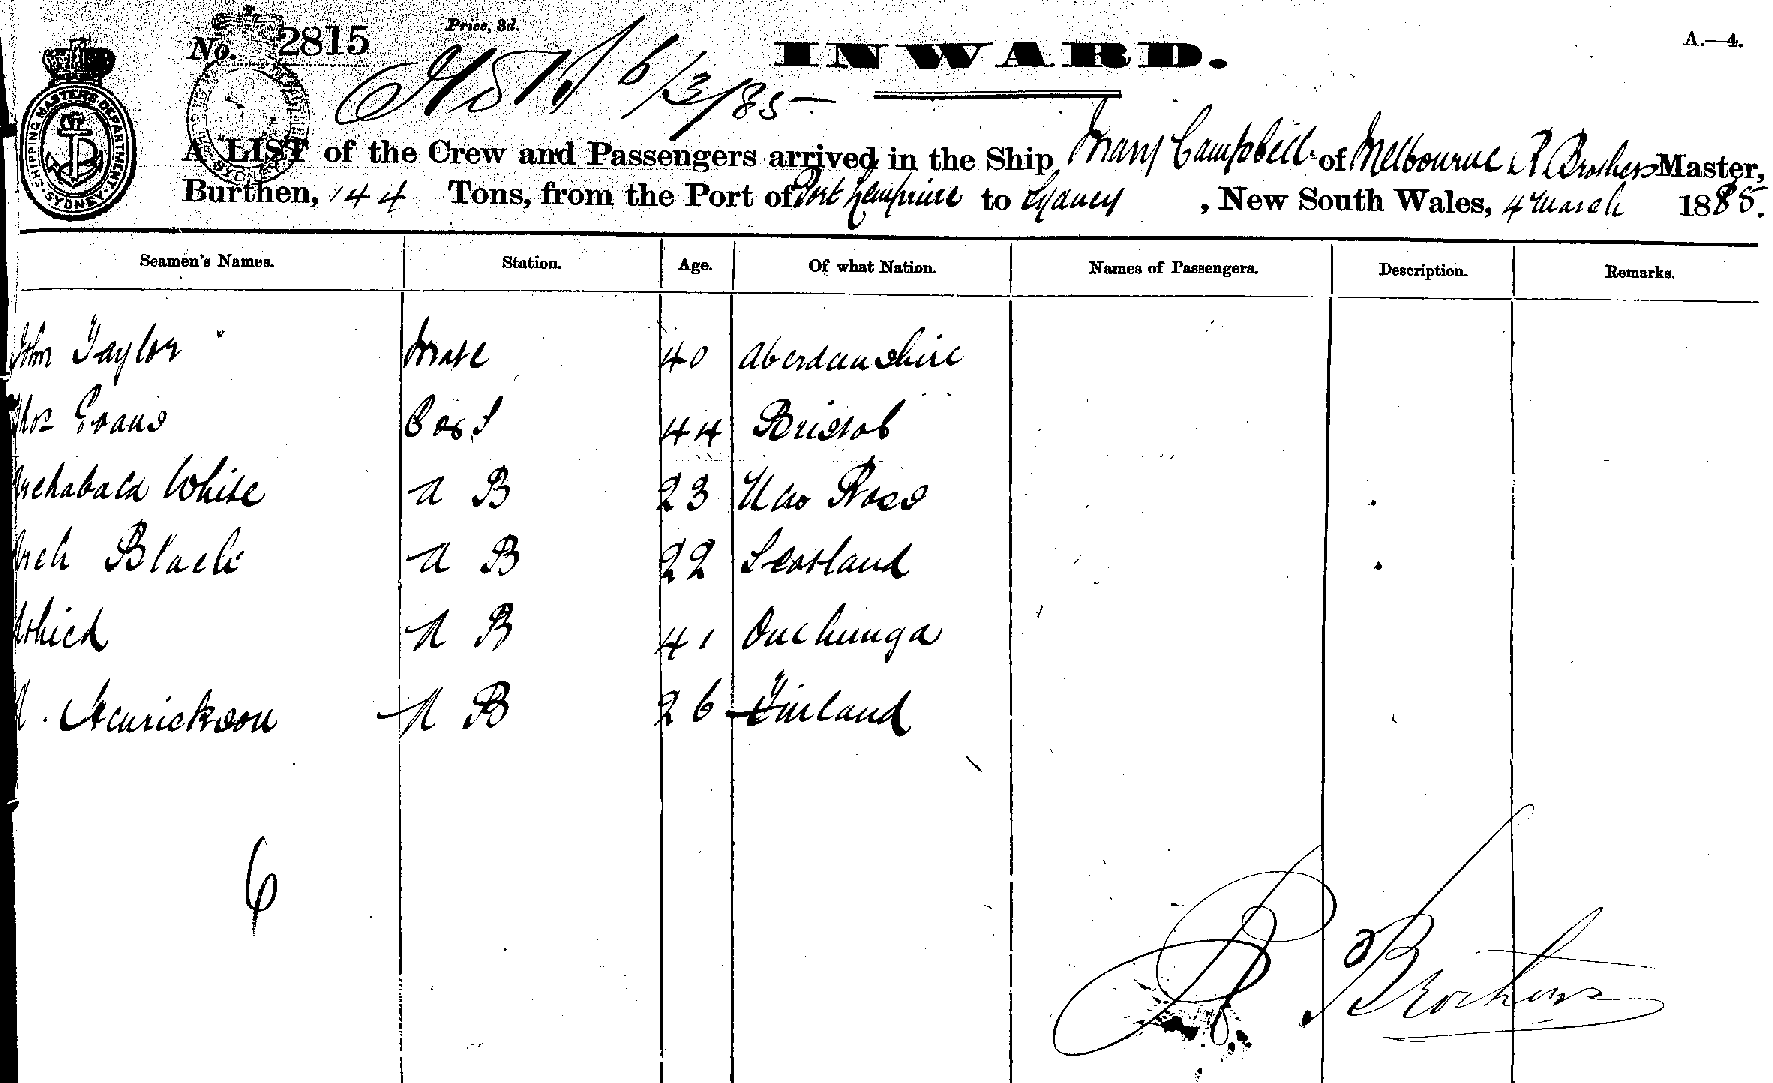 No. 2815
Price, 3d.
INWARD.
A.—4.
6/3/85
SHIPPING MASTERS DEPARTMENT SYDNEY
A LIST of the Crew and Passengers arrived in the Ship Mary Campbell of Melbourne R Brothers Master,
Burthen, 144 Tons, from the Port of Port to Sydney, New South Wales, 4 March 1885.
Seamen's Names. Station. Age. Of what Nation. Names of Passengers. Description. Remarks.
John Taylor Mate 40 Aberdeenshire
Thos Evans 44 Bristol
Archabald White A B 23 Ross
Arch Black A B 22 Scotland
A B 41 Onehunga
Henrickson A B 26 Finland
6
R Brothers